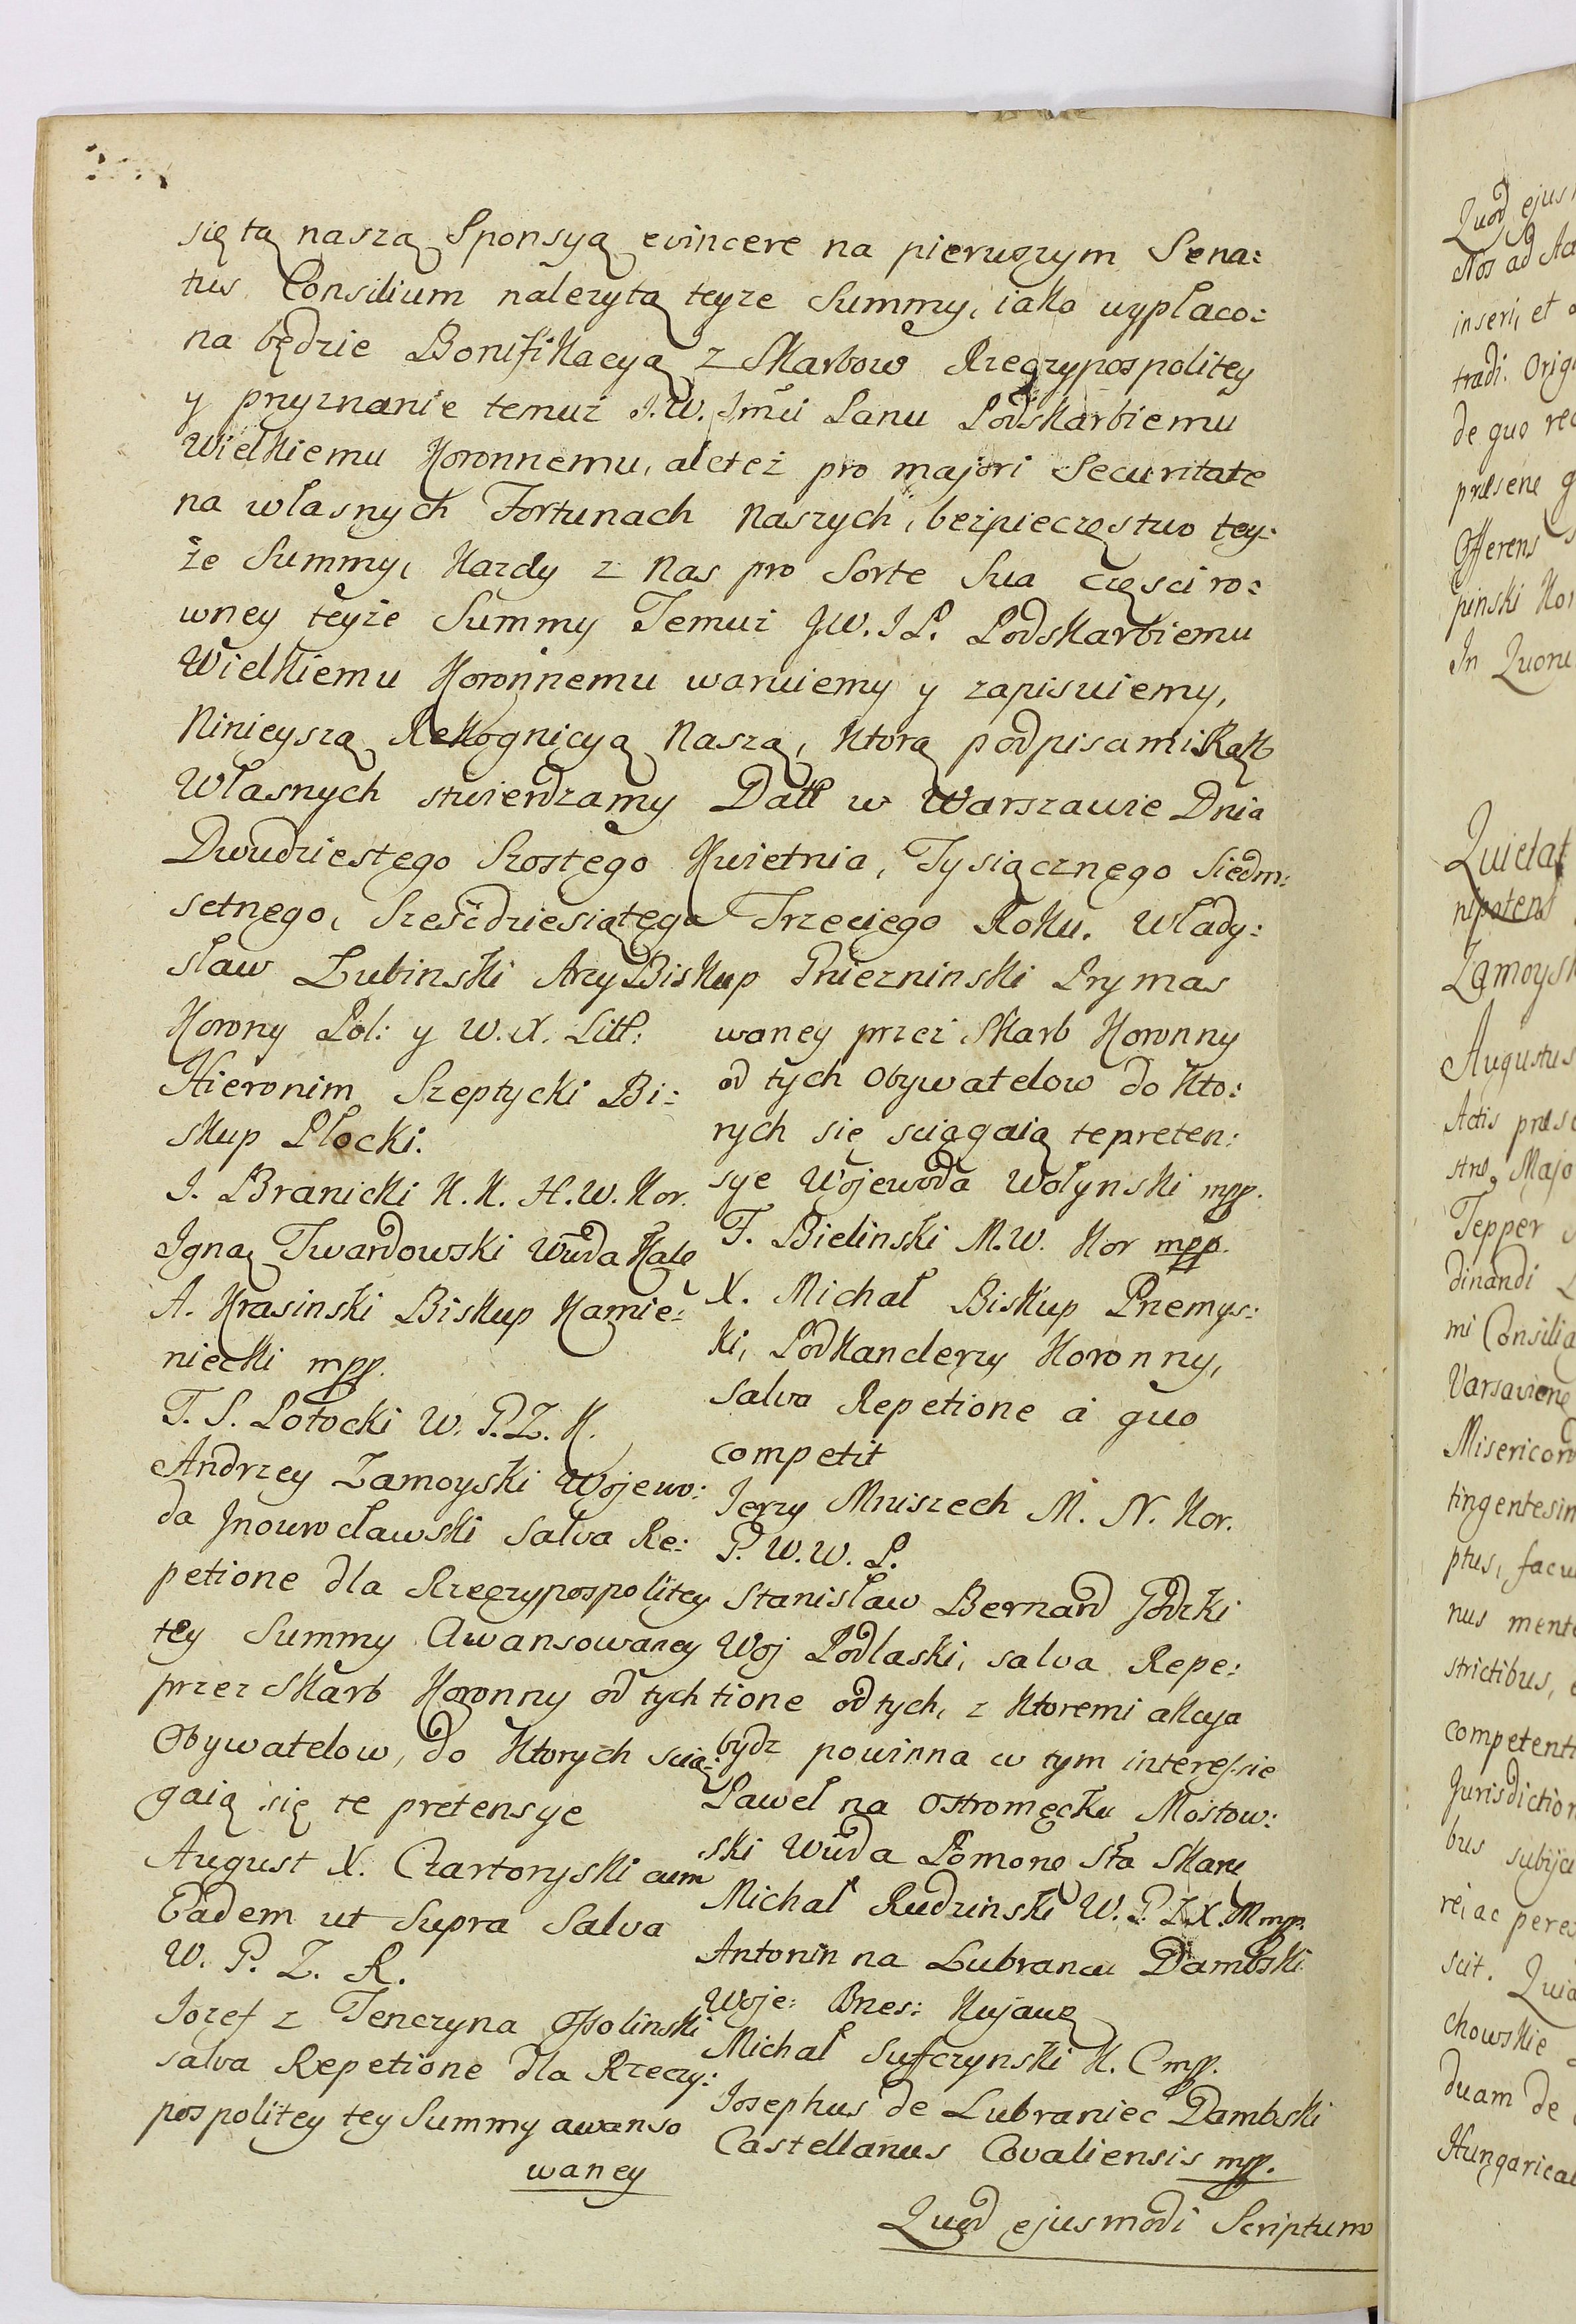 się tą naszą Sponsyą evincere na pierwszym Sena:
tus Consilium nalezytą teyze Summy, iako wypłaco:
na będzie Bonifikacyą z Skarbow Rzeczypospolitey
y przyznanie temuż J.W. Jmći Panu Podskarbiemu
Wielkiemu Koronnemu, ale też pro majori Securitate
na własnych Fortunach Naszych, beźpieczęstwo tey:
że Summy, Kazdy z Nas pro Sorte Sua częsci ro:
wney teyże Summy Temuż J.W. J P. Podskarbiemu
Wielkiemu Koronnemu waruiemy y zapisuiemy,
Ninieyszą Rekognicyą Naszą, Ktorą podpisami Rąk
Własnych stwierdzamy Datt w Warszawie Dnia
Dwudziestego Szostego Kwietnia, Tysiącznego Siedm:
setnego, Sześćdziesiątego Trzeciego Roku. Włady:
sław Łubinski ArcyBiskup Gniezninski Prymas
Korony Pol: y W. X. Litt:
Hieronim Szeptycki Bi:
skup Płocki.
J. Branicki K. K. H. W. Kor.
Ignaz Twardowski Wwda Kale
A. Krasinski Biskup Kamie:
niecki mpp.
F. S. Potocki W. P. Z. K.
Andrzey Zamoyski Wojewo:
da Jnowrocławski Salva Re:
petione dla Rzeczypospolitey
tey Summy Awansowaney
przez Skarb Koronny od tych
Obywatelow, do Ktorych ścią:
gaią się te pretensye
August X. Czartoryski cum
Eadem ut Supra Salva
W. P. Z. R.
Jozef z Tenczyna Ossolinski
salva Repetione dla Rzeczy:
pospolitey tey Summy awanso
waney
waney przez Skarb Koronny
od tych Obywatelow do Kto:
rych się sciągaią te preten:
sye Wojewoda Wołynski mpp.
F. Bielinski M. W. Kor mpp.
X. Michał Biskup Przemys:
ki, PodKanclerzy Koronny,
salva Repetione á quo
competit
Jerzy Mniszech M. N. Kor.
P. W. W. P.
Stanisław Bernard Godzki
Woj Podlaski, salva Repe:
tione od tych, z Ktoremi akcya
bydz powinna w tym interessie
Paweł na Ostromęcku Mostow:
ski Wwda Pomor Sta
Michał Rudzinski W. P. Z. X. M mpp.
Antonin na Lubrancu Dambski
Woje: Brzes: Kujaw
Michał Sufczynski K. C mpp.
Josephus de Lubraniec Dambski
Castellanus Covaliensis mpp.
Quod ejusmodi Scriptum
Quod ejus
Nos ad Ac
inseri, et
tradi. Orig
de quo rec
præsene
Offerens
pinski Kor
In Quoru
Quietat
nipotens
Zamoysk
Augustus
Actis præs
Majo
Tepper
dinandi
mi Consilia
Varsaviene
Misericor
tingentesim
ptus, facu
nus mente
strictibus,
competent
Jurisdiction
bus subijci
rei ac pere
scit. Quia
chowskie
duam de
Hungarical